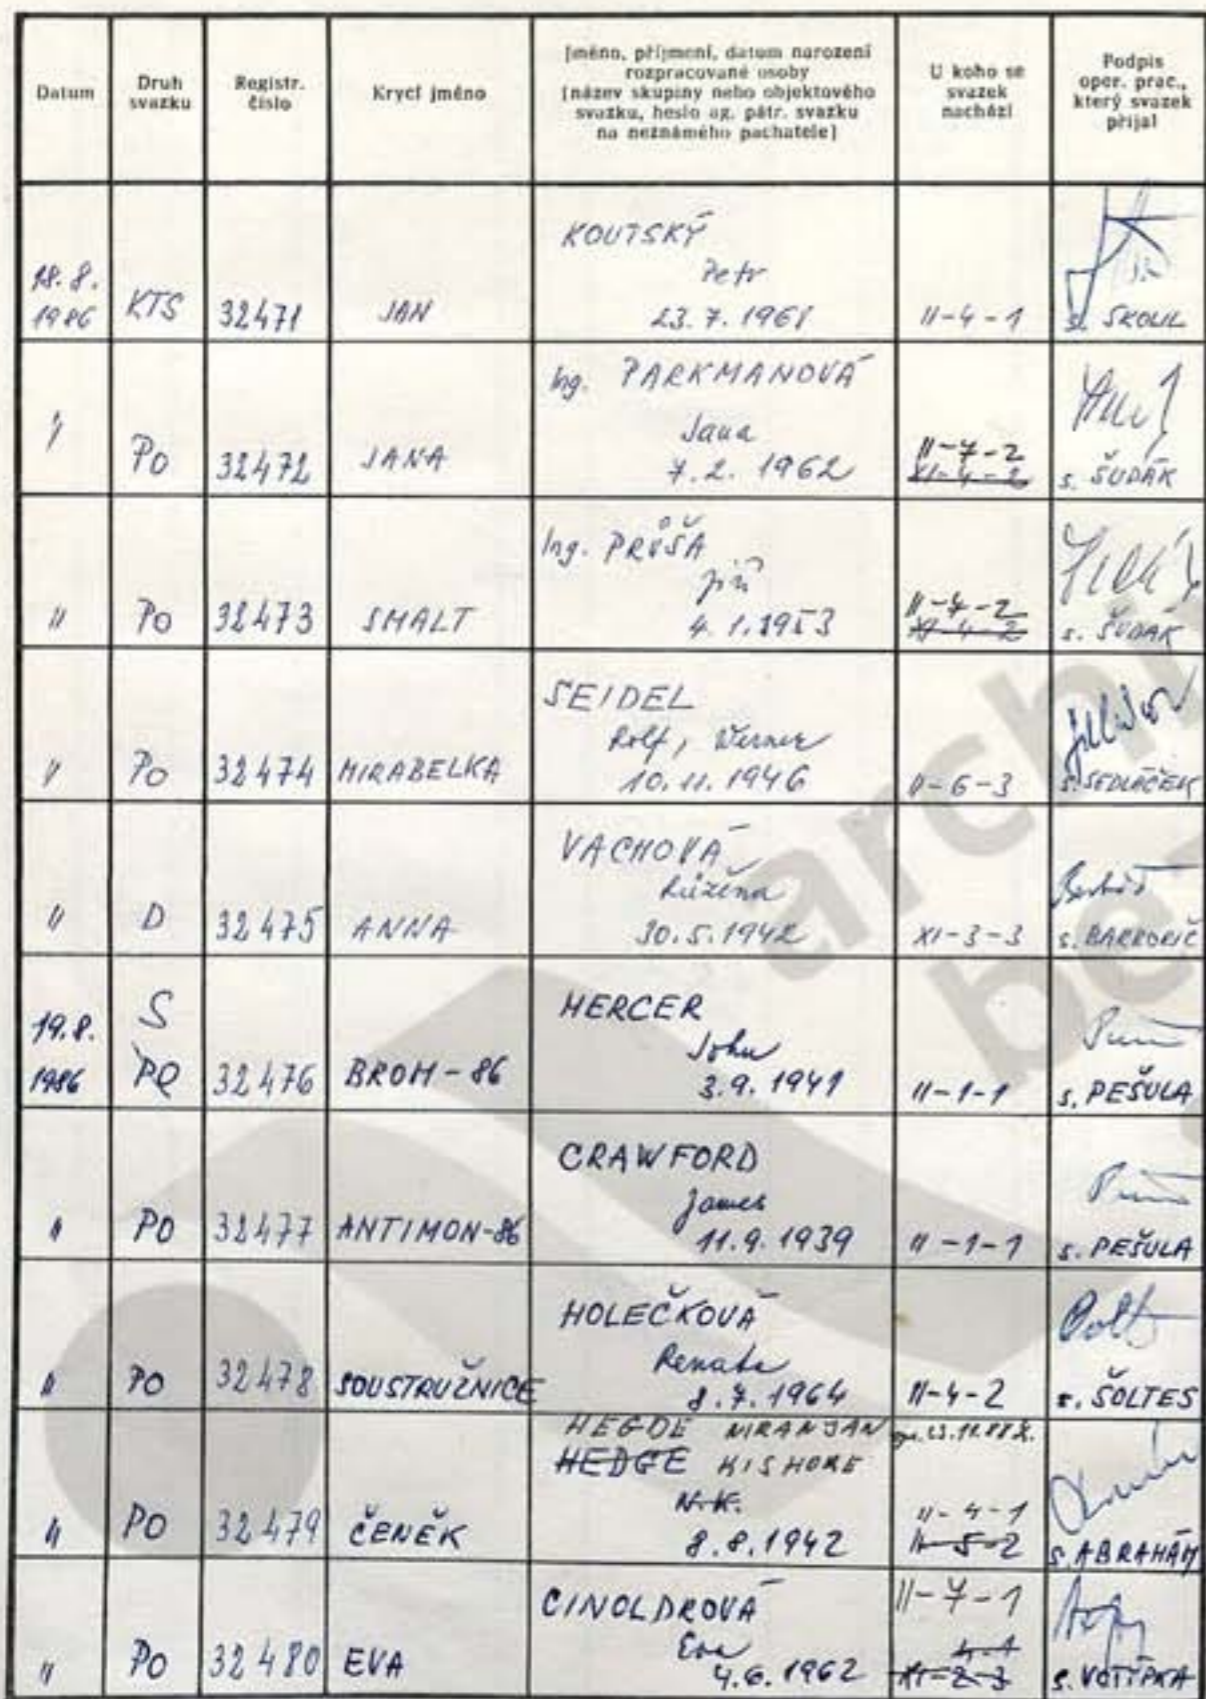 Datum
Druh
svazku
Registr.
číslo
Krycí jméno
Jméno, příjmení, datum narození
rozpracované osoby
(název skupiny nebo objektového
svazku, heslo ag. pátr. svazku
na neznámého pachatele)
U koho se
svazek
nachází
Podpis
oper. prac.,
který svazek
přijal
18. 8.
1986
KTS
32471
JAN
KOUTSKÝ
Petr
23. 7. 1961
II-4-1
s. SKOUL
"
PO
32472
JANA
Ing. PARKMANOVÁ
Jana
7. 2. 1962
II-7-2
XI-4-2
s. ŠUDÁK
"
PO
32473
SMALT
Ing. PRŮŠA
Jiří
4. 1. 1953
II-7-2
XI-4-2
s. ŠUDÁK
"
PO
32474
MIRABELKA
SEIDEL
Rolf, Werner
10. 11. 1946
II-6-3
s. SEDLÁČEK
"
D
32475
ANNA
VACHOVÁ
Růžena
30. 5. 1942
XI-3-3
s.
19. 8.
1986
S
PO
32476
BROM-86
MERCER
John
3. 9. 1941
II-1-1
s. PEŠULA
"
PO
32477
ANTIMON-86
CRAWFORD
James
11. 9. 1939
II-1-1
s. PEŠULA
"
PO
32478
SOUSTRUŽNICE
HOLEČKOVÁ
Renata
8. 7. 1964
II-4-2
s. ŠOLTES
"
PO
32479
ČENĚK
HEGDE NIRANJAN
HEDGE KISHORE
N.K.
8. 8. 1942
II-4-1
II-5-2
s. ABRAHÁM
"
PO
32480
EVA
CINOLDROVÁ
Eva
4. 6. 1962
II-7-1
4-1
XI-2-3
s. VOTÍPKA